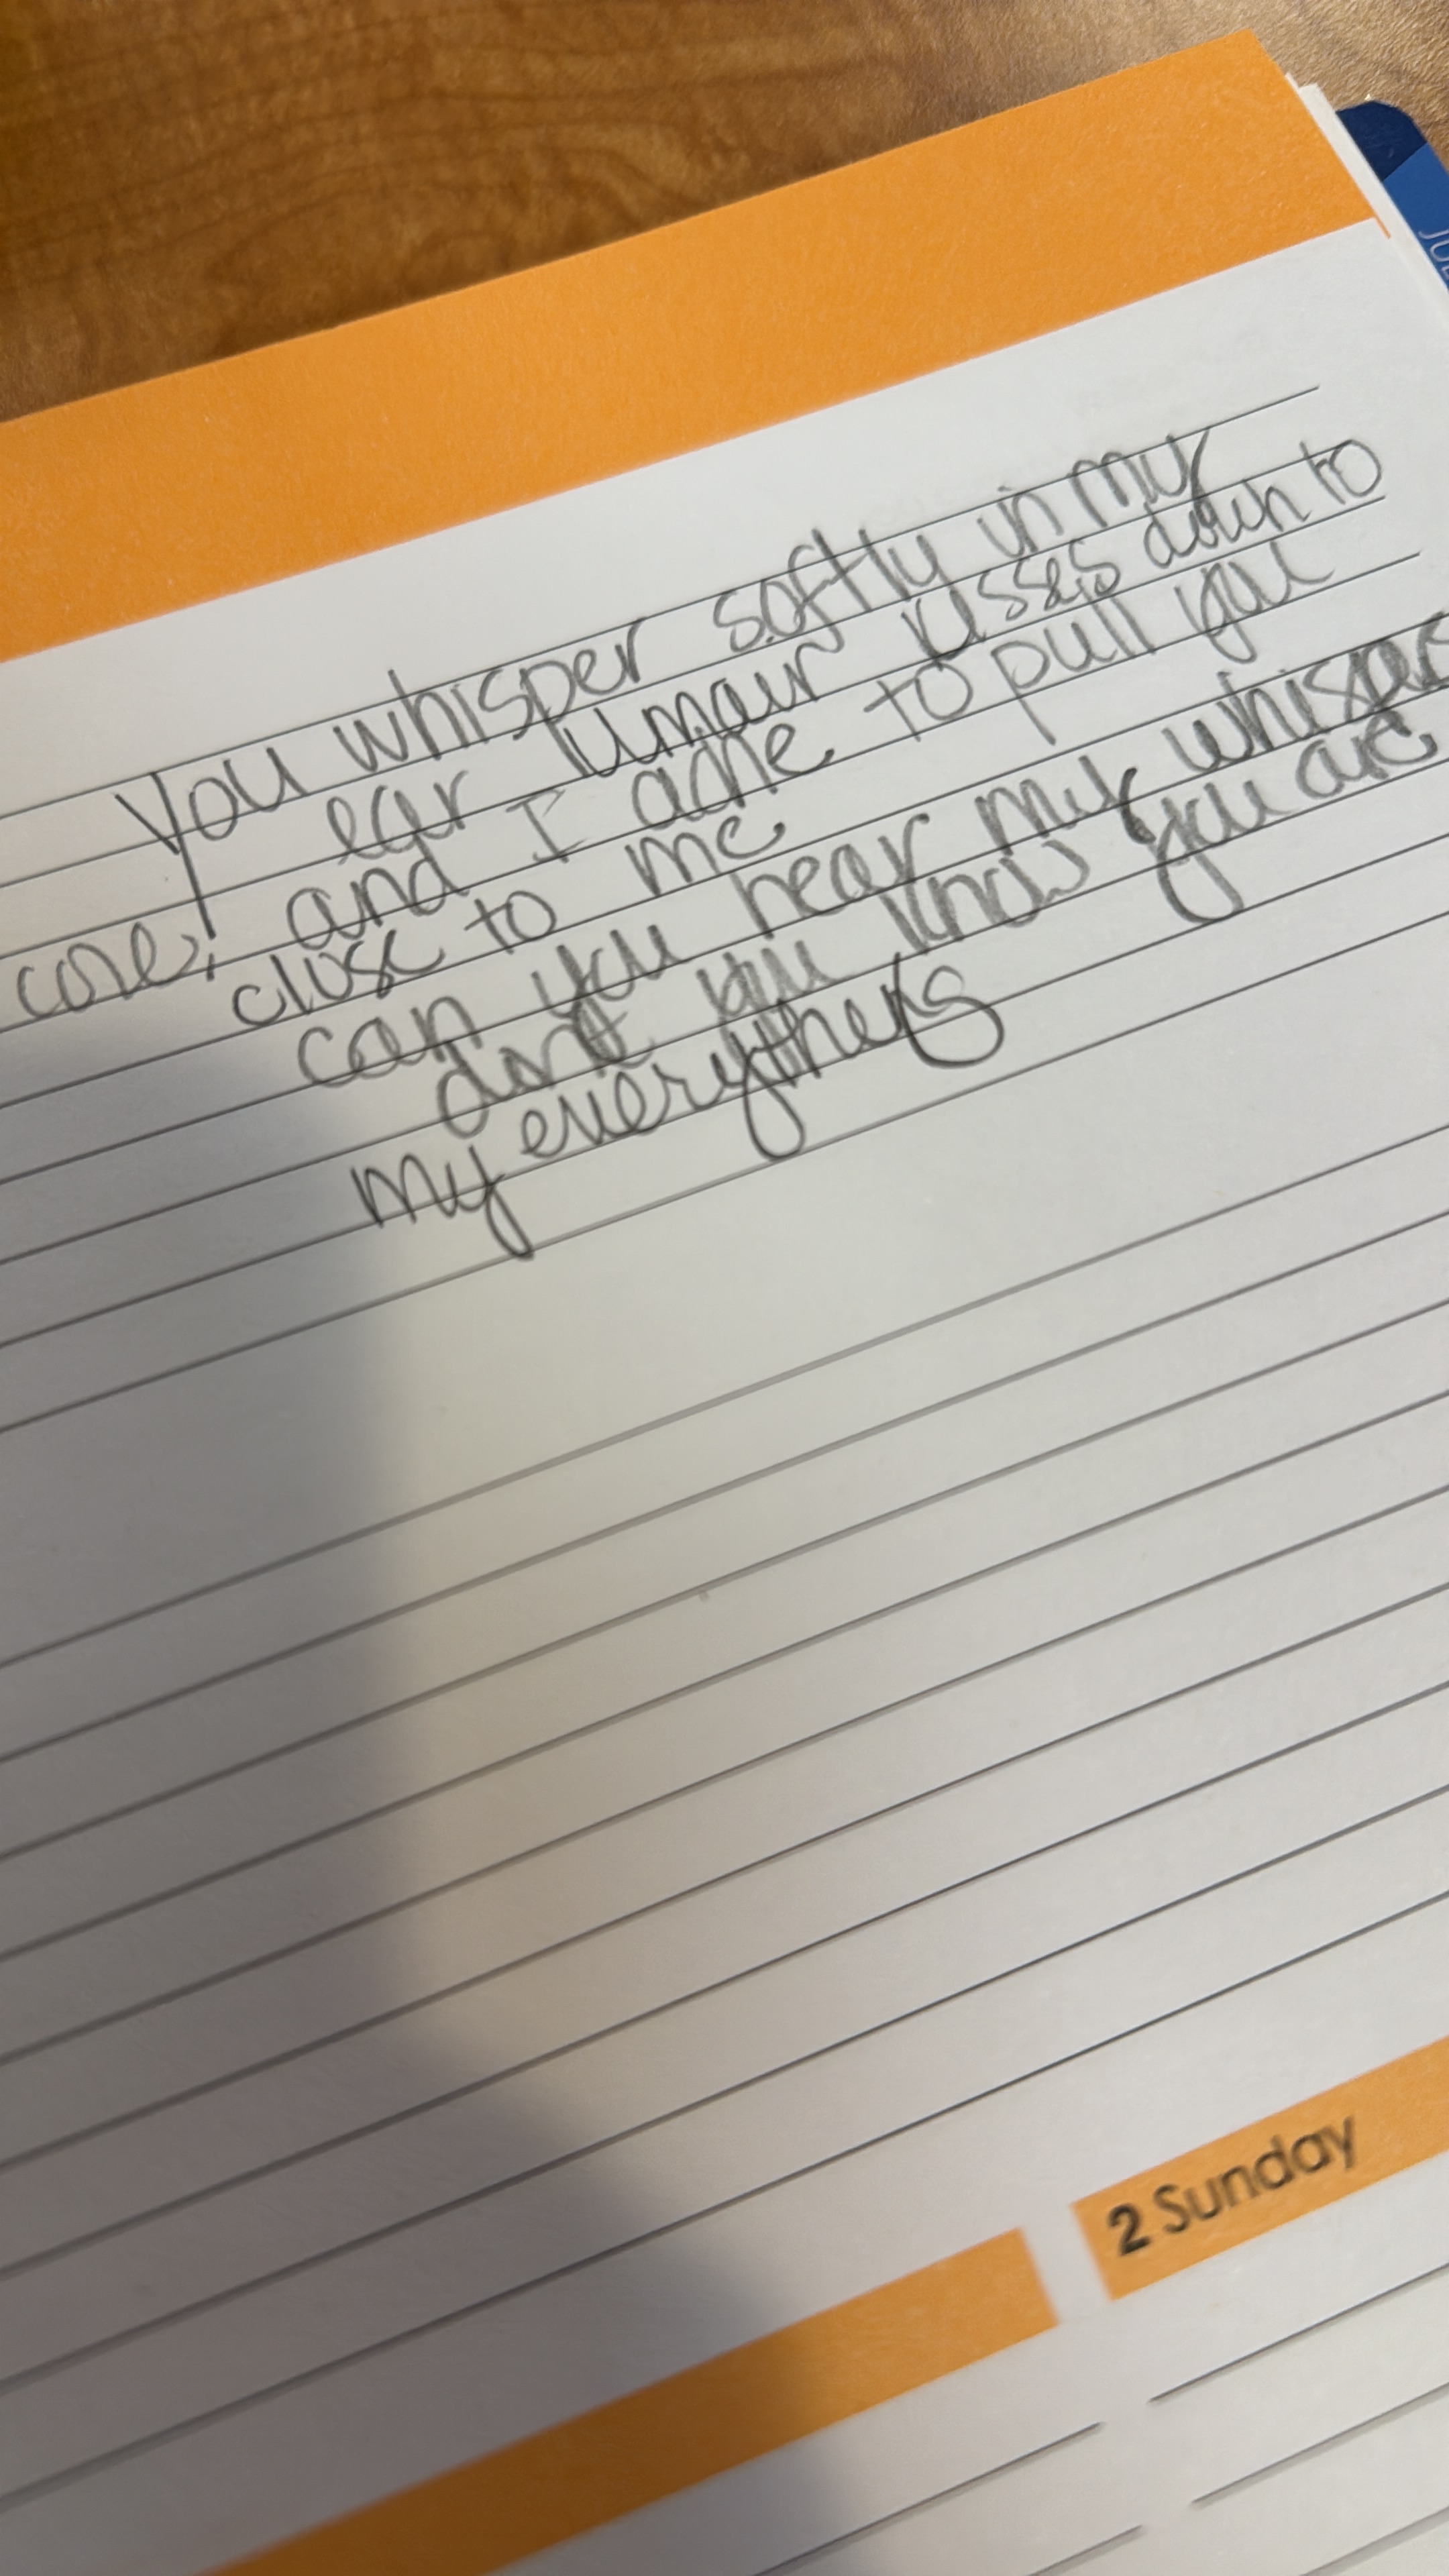 You whisper softly in my
ear kisses down to
core, and I ache to pull you
close to me
can you hear my whisper
don't you know you are
my everything
2 Sunday